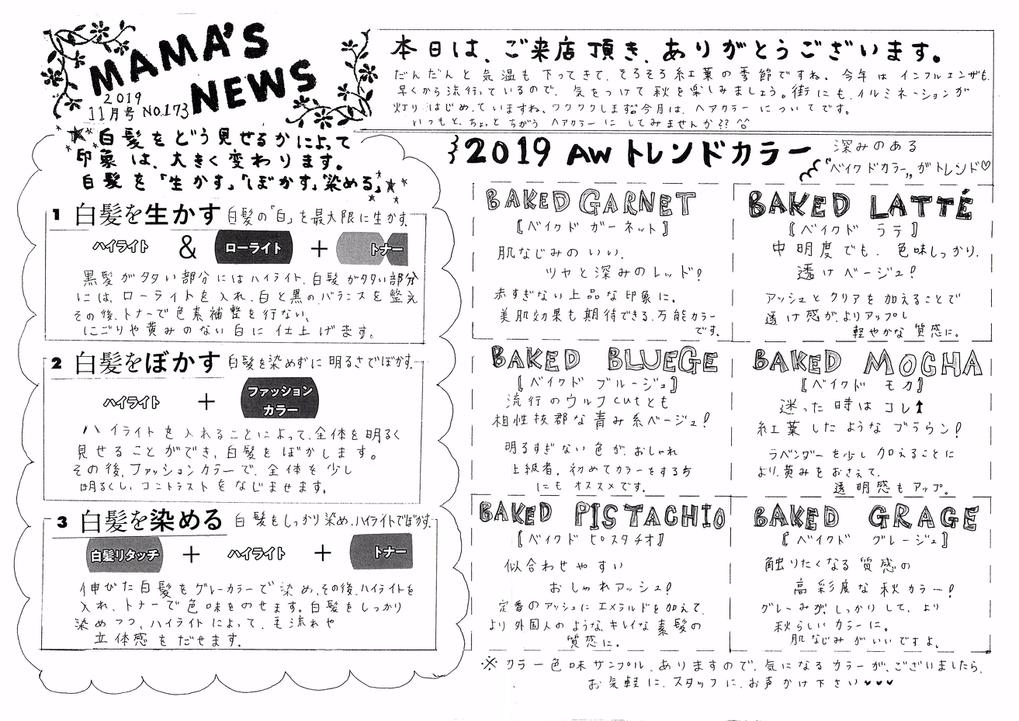 MAMA'S
NEWS
2019
11月号 No.173
本日は、ご来店頂き、ありがとうございます。
だんだんと気温も下ってきて、そろそろ紅葉の季節ですね。今年はインフルエンザも、
早くから流行っているので、気をつけて秋を楽しみましょう。街にも、イルミネーションが
灯りはじめていますね、ワクワクします今月は、ヘアカラーについてです。
いつもと、ちょっとちがうヘアカラーにしてみませんか??
白髪をどう見せるかによって
印象は、大きく変わります。
白髪を「生かす」「ぼかす」「染める」
1 白髪を生かす 白髪の「白」を最大限に生かす。
ハイライト & ローライト + トナー
黒髪が多い部分にはハイライト、白髪が多い部分
には、ローライトを入れ、白と黒のバランスを整え
その後、トナーで色素補整を行ない、
にごりや黄みのない白に仕上げます。
2 白髪をぼかす 白髪を染めずに明るさでぼかす。
ハイライト + ファッション
カラー
ハイライトを入れることによって、全体を明るく
見せることができ、白髪をぼかします。
その後、ファッションカラーで、全体を少し
明るくし、コントラストをなじませます。
3 白髪を染める 白髪をしっかり染め、ハイライトでぼかす。
白髪リタッチ + ハイライト + トナー
伸びた白髪をグレーカラーで染め、その後、ハイライトを
入れ、トナーで色味をのせます。白髪をしっかり
染めつつ、ハイライトによって、毛流れや
立体感をだせます。
2019 AW トレンドカラー
深みのある
"ベイクドカラー"がトレンド♡
BAKED GARNET
【ベイクド ガーネット】
肌なじみのいい、
ツヤと深みのレッド!
赤すぎない上品な印象に。
美肌効果も期待できる、万能カラー
です。
BAKED LATTÉ
【ベイクド ラテ】
中明度でも、色味しっかり、
透けベージュ!
アッシュとクリアを加えることで
透け感が、よりアップし
軽やかな質感に。
BAKED BLUEGE
【ベイクド ブルージュ】
流行のウルフcutとも
相性抜群な青み系ベージュ!
明るすぎない色が、おしゃれ
上級者。初めてカラーをする方
にもオススメです。
BAKED MOCHA
【ベイクド モカ】
迷った時はコレ↑
紅葉したようなブラウン!
ラベンダーを少し加えることに
より、黄みをおさえて、
透明感もアップ。
BAKED PISTACHIO
【ベイクド ピスタチオ】
似合わせやすい
おしゃれアッシュ!
定番のアッシュにエメラルドを加えて、
より外国人のような、キレイな素髪の
質感に。
BAKED GRAGE
【ベイクド グレージュ】
触りたくなる質感の
高彩度な秋カラー!
グレーみが、しっかりして、より
秋らしいカラーに。
肌なじみがいいですよ。
※カラー色味サンプル、ありますので、気になるカラーが、ございましたら、
お気軽に、スタッフに、お声かけ下さい♥♥♥